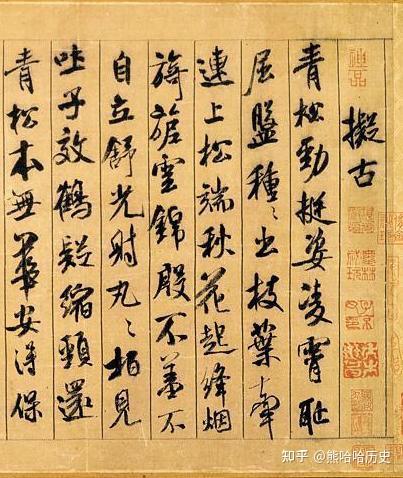 擬古
青松勁挺姿凌霄恥
屈盤種〻出枝葉牽
連上松端秋花起絳烟
旖旎雲錦殷不羞不
自立舒光射丸〻栢見
吐子效鶴疑縮頸還
青松本無華安得保
知乎 @熊哈哈历史